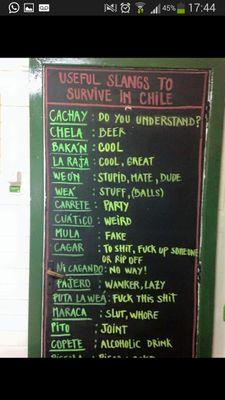 45% 17:44
USEFUL SLANGS TO
SURVIVE IN CHILE
CACHAY : DO YOU UNDERSTAND?
CHELA : BEER
BAKA'N : COOL
LA RAJA : COOL, GREAT
WEÓN : STUPID, MATE, DUDE
WEÁ : STUFF, (BALLS)
CARRETE : PARTY
CUÁTICO : WEIRD
MULA : FAKE
CAGAR : TO SHIT, FUCK UP SOMEONE
OR RIP OFF
NI CAGANDO : NO WAY!
PAJERO : WANKER, LAZY
PUTA LA WEÁ : FUCK THIS SHIT
MARACA : SLUT, WHORE
PITO : JOINT
COPETE : ALCOHOLIC DRINK